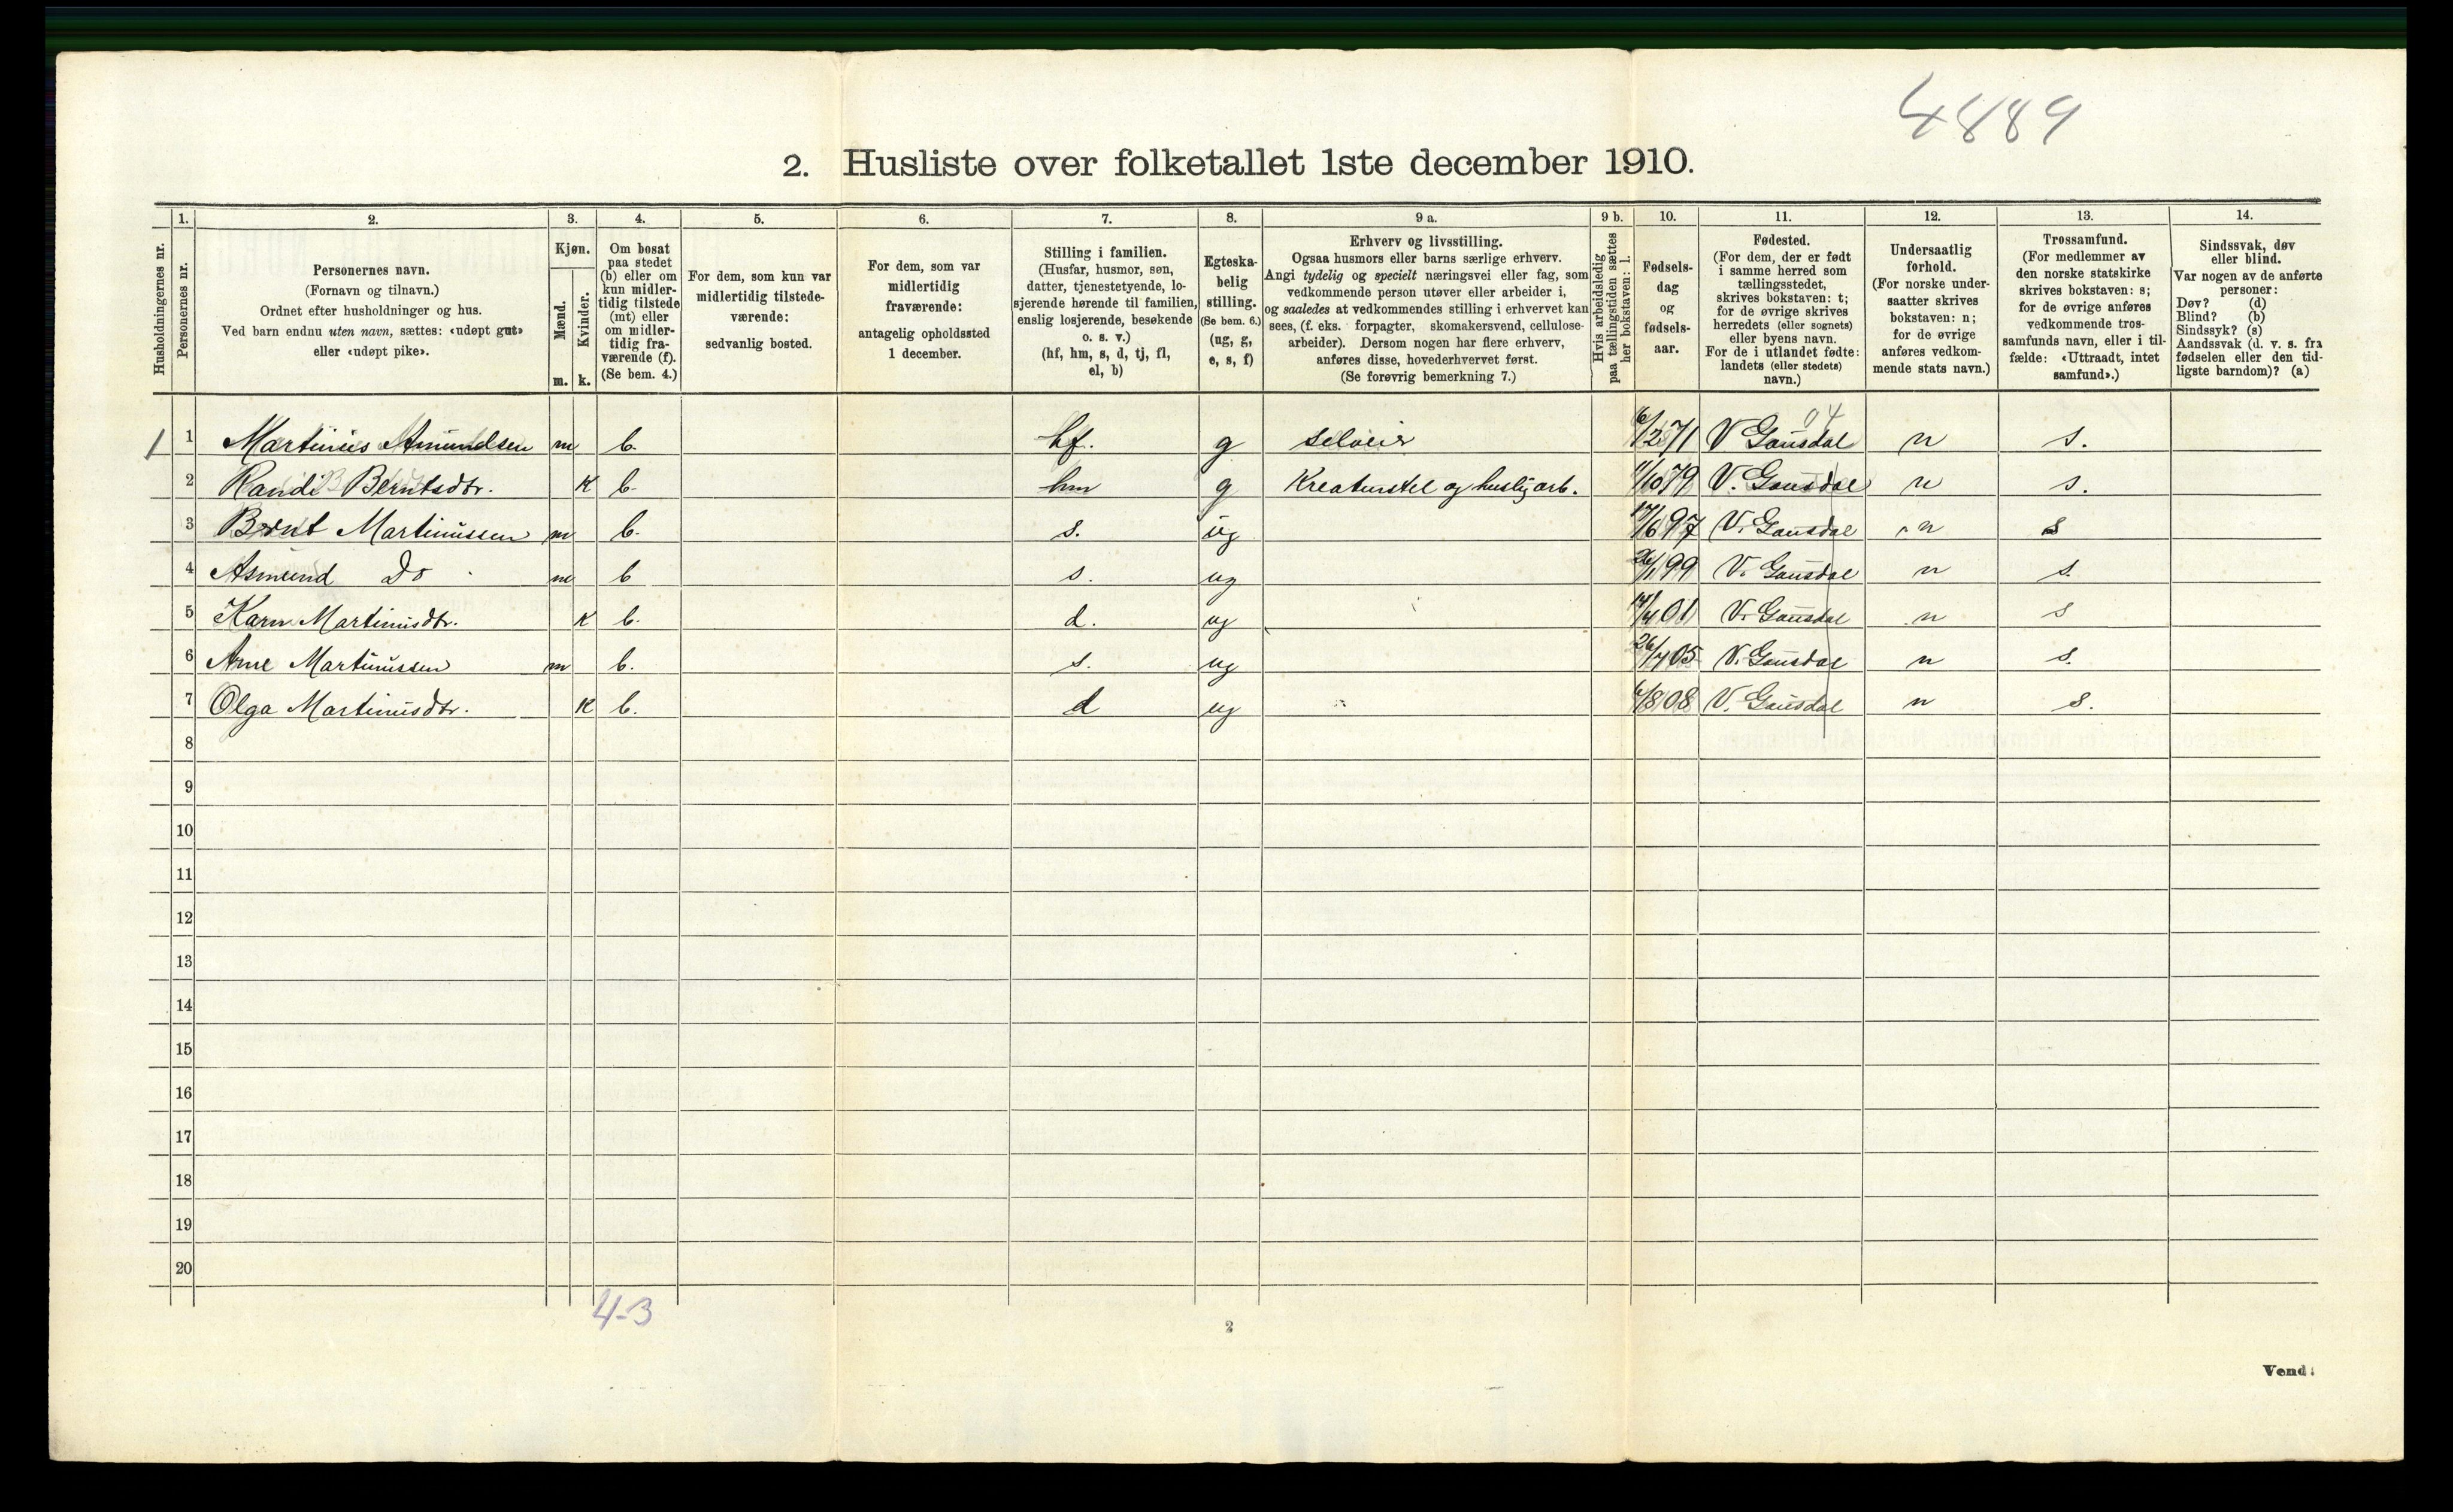 4889
2. Husliste over folketallet 1ste december 1910.
Husholdningernes nr.
1.
Personernes nr.
2.
Personernes navn.
(Fornavn og tilnavn.)
Ordnet efter husholdninger og hus.
Ved barn endnu uten navn, sættes: «udøpt gut»
eller «udøpt pike».
3.
Kjøn.
Mænd.
m.
Kvinder.
k.
4.
Om bosat
paa stedet
(b) eller om
kun midler-
tidig tilstede
(mt) eller
om midler-
tidig fra-
værende (f).
(Se bem. 4.)
5.
For dem, som kun var
midlertidig tilstede-
værende:
sedvanlig bosted.
6.
For dem, som var
midlertidig
fraværende:
antagelig opholdssted
1 december.
7.
Stilling i familien.
(Husfar, husmor, søn,
datter, tjenestetyende, lo-
sjerende hørende til familien,
enslig losjerende, besøkende
o. s. v.)
(hf, hm, s, d, tj, fl,
el, b)
8.
Egteska-
belig
stilling.
(Se bem. 6.)
(ug, g,
e, s, f)
9 a.
Erhverv og livsstilling.
Ogsaa husmors eller barns særlige erhverv.
Angi tydelig og specielt næringsvei eller fag, som
vedkommende person utøver eller arbeider i,
og saaledes at vedkommendes stilling i erhvervet kan
sees, (f. eks. forpagter, skomakersvend, cellulose-
arbeider). Dersom nogen har flere erhverv,
anføres disse, hovederhvervet først.
(Se forøvrig bemerkning 7.)
9 b.
Hvis arbeidsledig
paa tællingstiden sættes
her bokstaven: l.
10.
Fødsels-
dag
og
fødsels-
aar.
11.
Fødested.
(For dem, der er født
i samme herred som
tællingsstedet,
skrives bokstaven: t;
for de øvrige skrives
herredets (eller sognets)
eller byens navn.
For de i utlandet fødte:
landets (eller stedets)
navn.)
12.
Undersaatlig
forhold.
(For norske under-
saatter skrives
bokstaven: n;
for de øvrige
anføres vedkom-
mende stats navn.)
13.
Trossamfund.
(For medlemmer av
den norske statskirke
skrives bokstaven: s;
for de øvrige anføres
vedkommende tros-
samfunds navn, eller i til-
fælde: «Uttraadt, intet
samfund».)
14.
Sindssvak, døv
eller blind.
Var nogen av de anførte
personer:
Døv? (d)
Blind? (b)
Sindssyk? (s)
Aandssvak (d. v. s. fra
fødselen eller den tid-
ligste barndom)? (a)
04
1 1 Martinius Amundsen m b. hf. g selveier 6/2 71 V Gausdal n s.
2 Randi Berntsdtr. K b. hm g Kreaturstel og huslig arb. 11/10 79 V. Gausdal n s.
3 Bernt Martinussen m b. s. ug 17/6 97 V. Gausdal n s
4 Asmund Do m b s. ug 26/1 99 V. Gausdal n s.
5 Karn Martinusdtr. K b. d. ug 14/4 01 V. Gausdal n s
6 Arne Martinussen m b. s. ug 26/4 05 V. Gausdal n s.
7 Olga Martinusdtr. K b. d ug 6/8 08 V. Gausdal n s.
8
9
10
11
12
13
14
15
16
17
18
19
20
4-3
2
Vend!